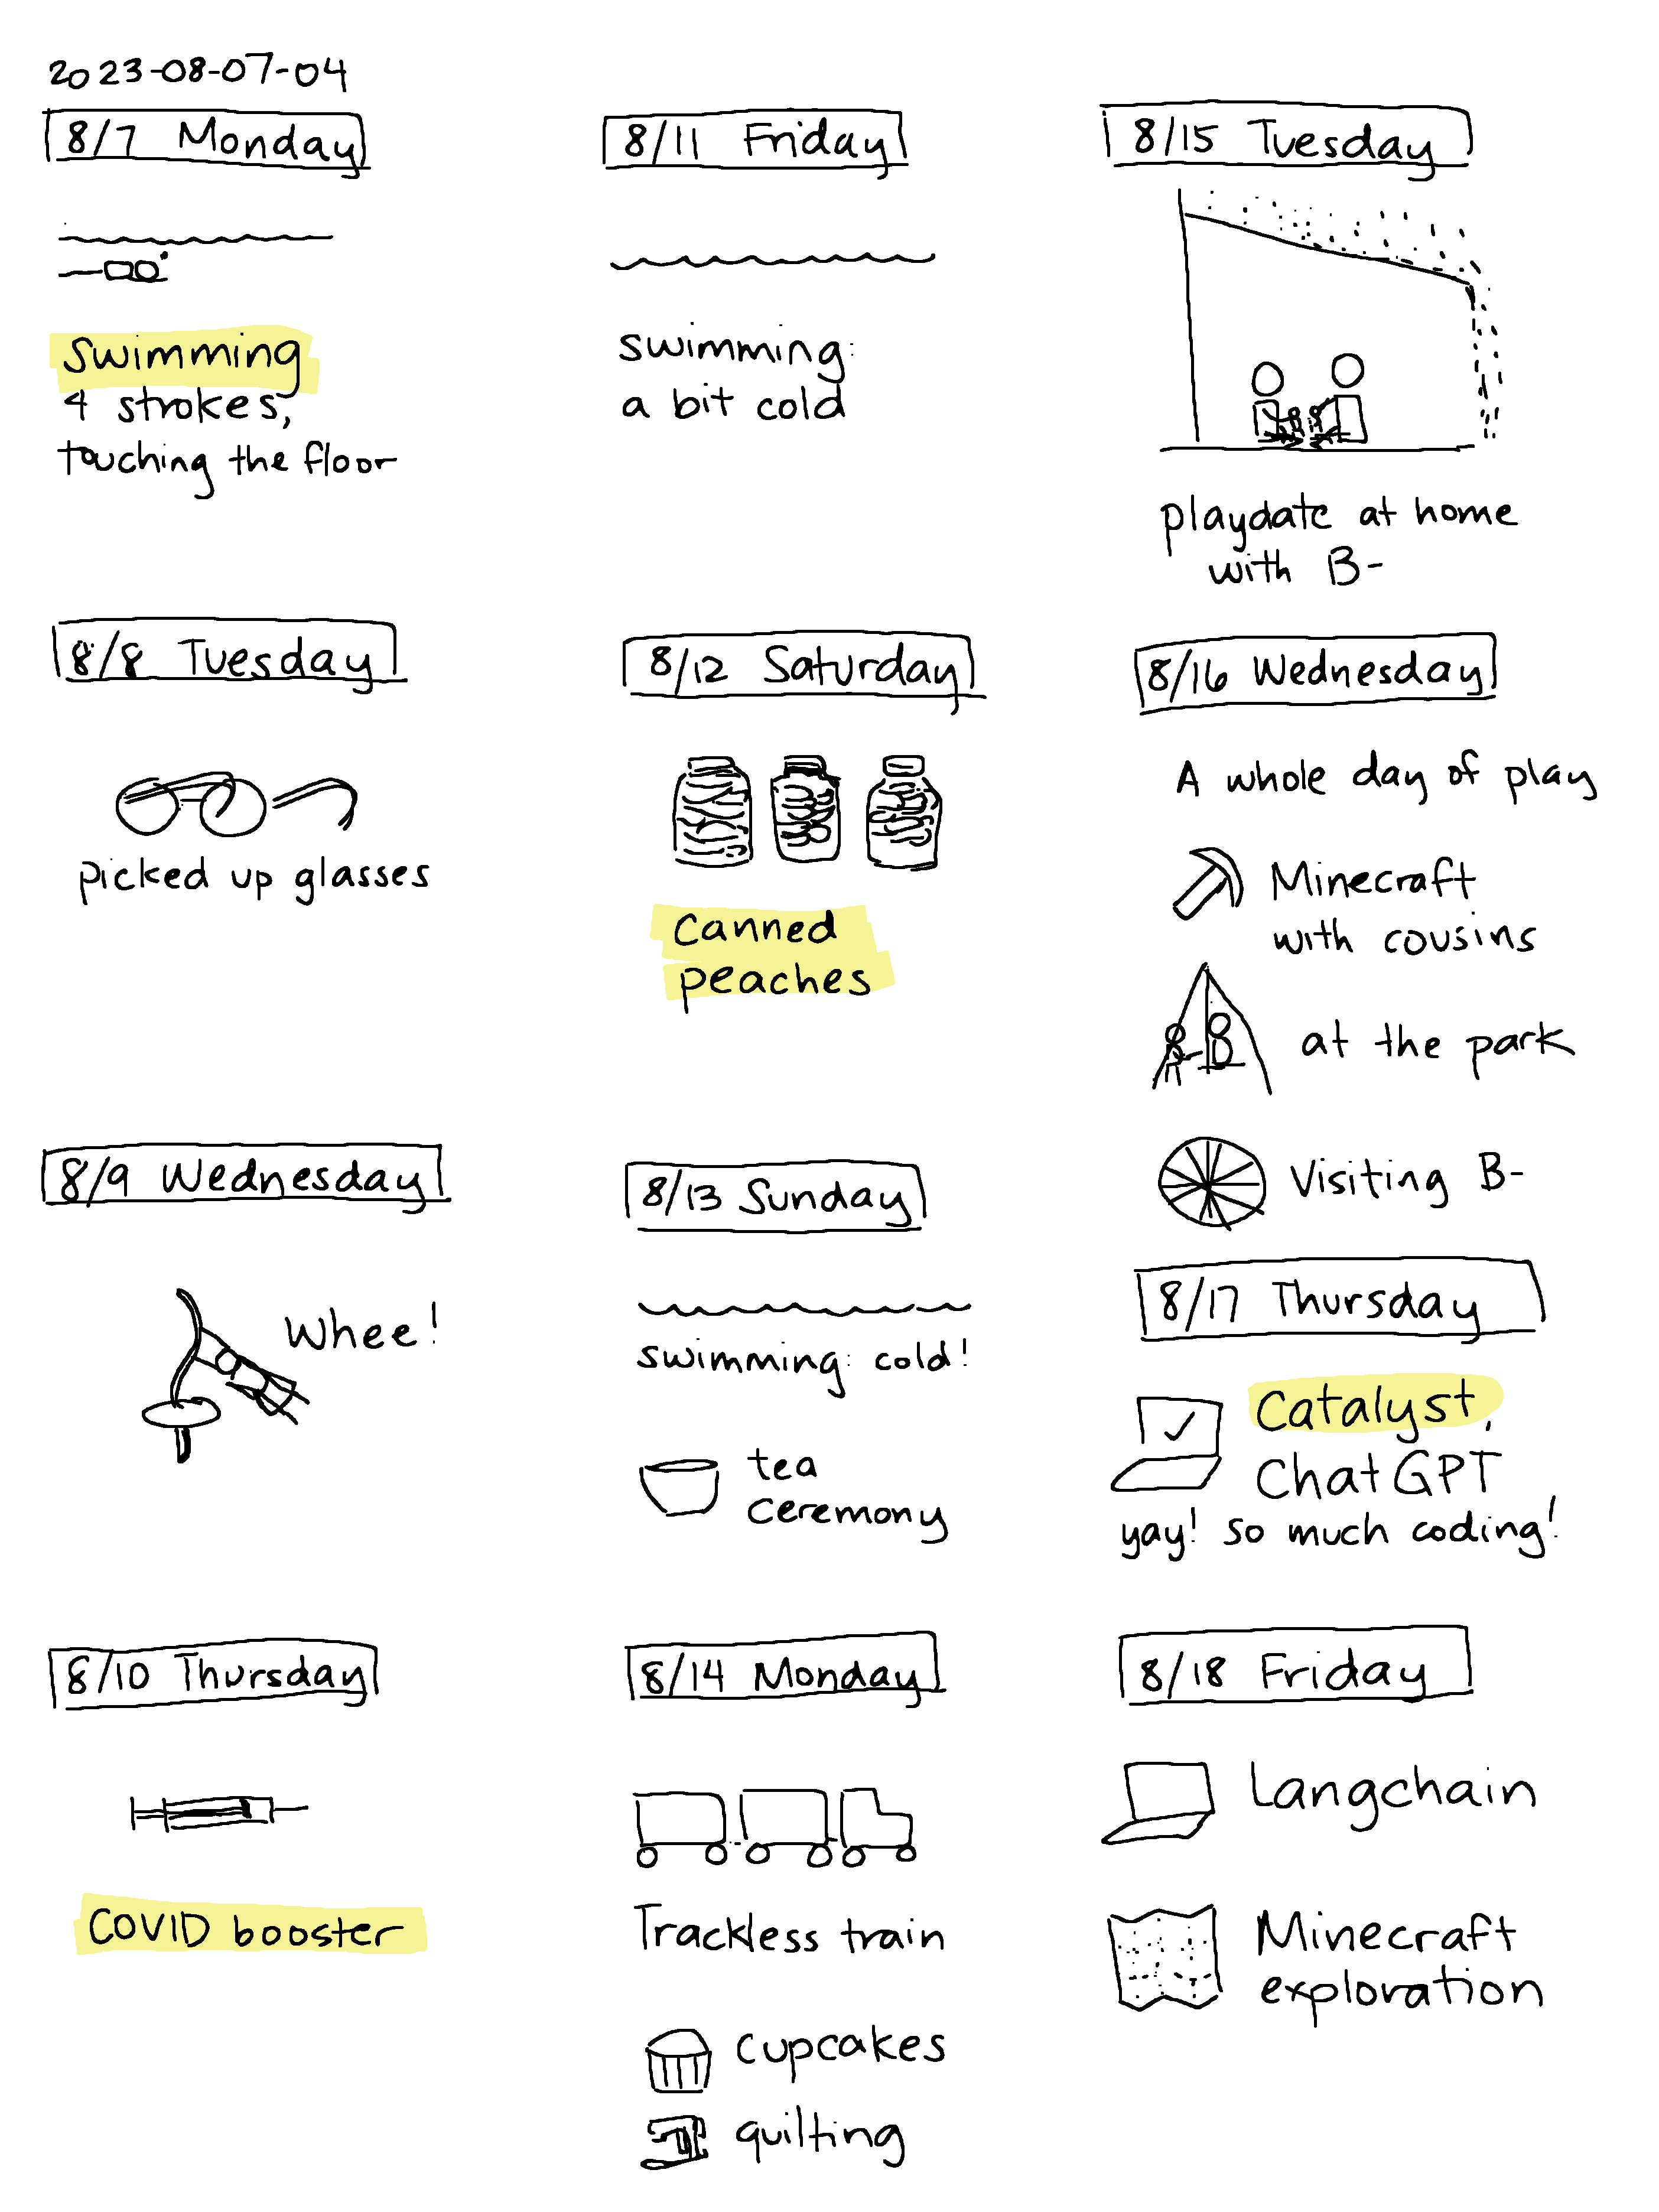 2023-08-07-04
8/7 Monday
Swimming
4 strokes,
touching the floor
8/8 Tuesday
picked up glasses
8/9 Wednesday
Whee!
8/10 Thursday
COVID booster
8/11 Friday
swimming:
a bit cold
8/12 Saturday
Canned
peaches
8/13 Sunday
swimming: cold!
tea
ceremony
8/14 Monday
Trackless train
cupcakes
quilting
8/15 Tuesday
playdate at home
with B-
8/16 Wednesday
A whole day of play
Minecraft
with cousins
at the park
Visiting B-
8/17 Thursday
Catalyst,
ChatGPT
yay! so much coding!
8/18 Friday
Langchain
Minecraft
exploration